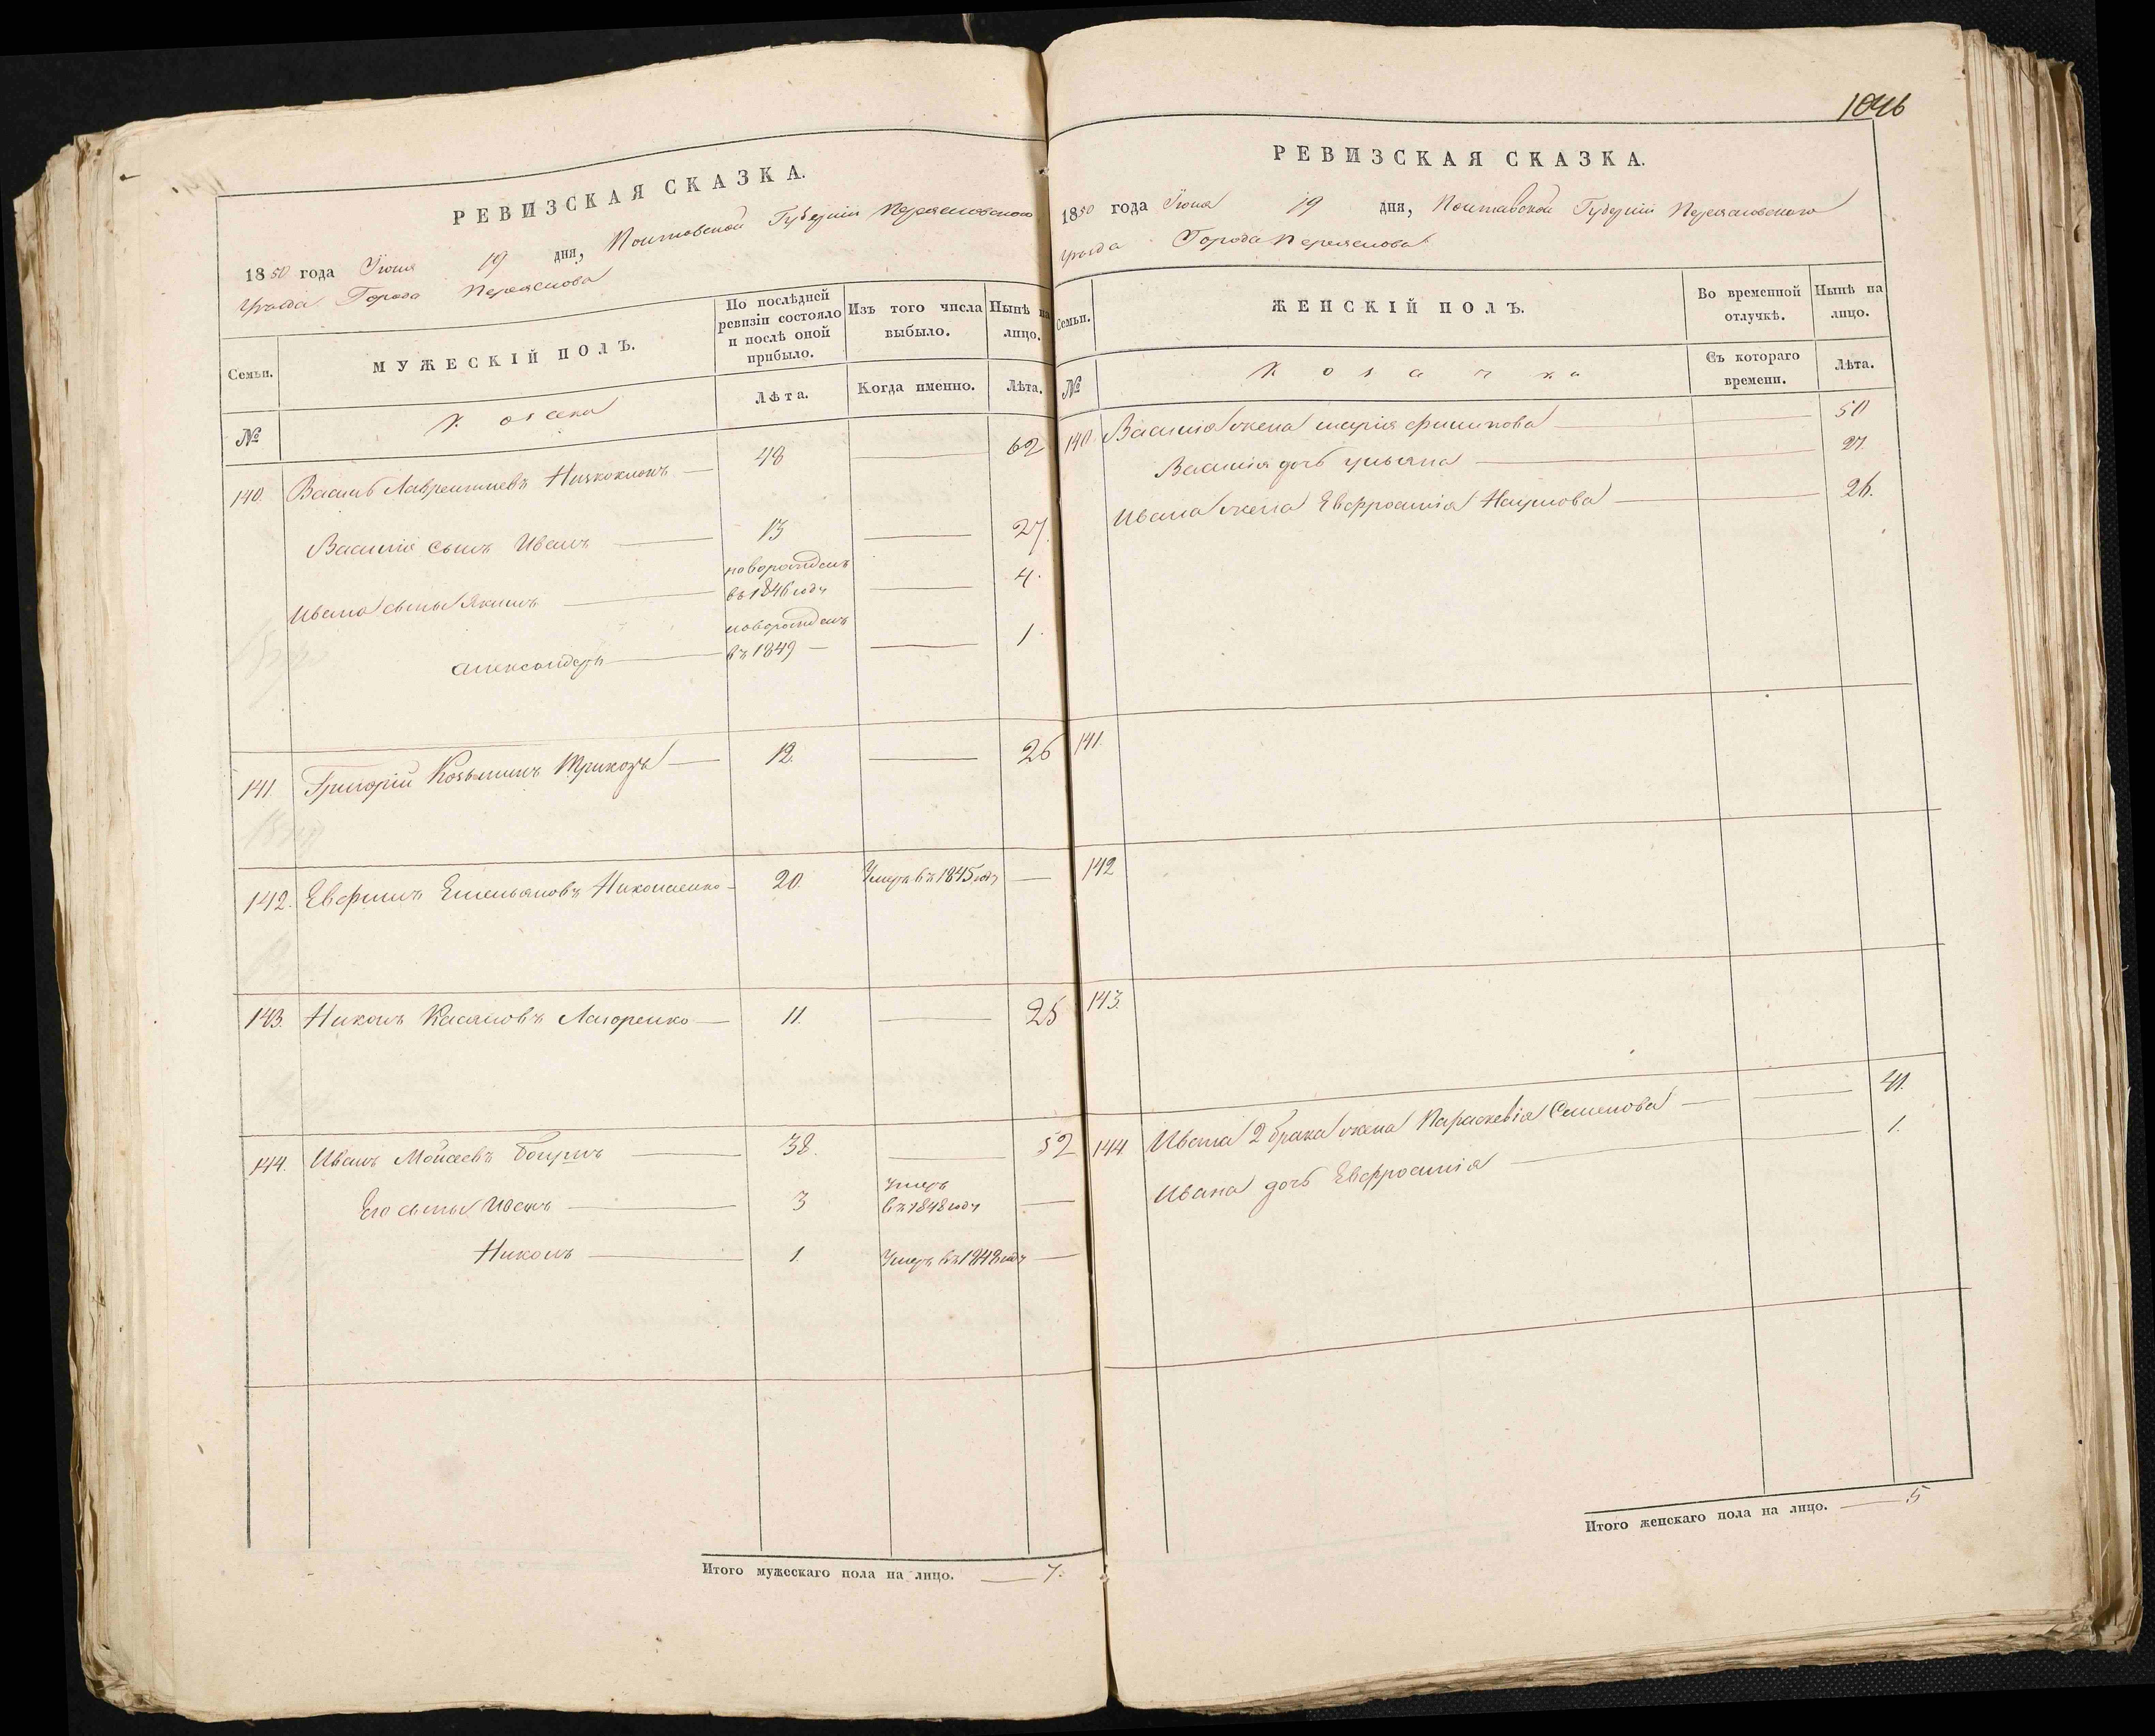 РЕВИЗСКАЯ СКАЗКА.
1850 года Іюня 19 дня, Полтавской Губерніи Переясловского
Уѣзда Города Переяслова
Семьи.
МУЖЕСКІЙ ПОЛЪ.
По послѣдней ревизіи состояло и послѣ оной прибыло.
Изъ того числа выбыло.
Нынѣ на лицо.
№
Козаки
Лѣта.
Когда именно.
Лѣта.
140. Василь Лаврентиевъ 48 62
Василія сынъ Иванъ 13 27.
Ивана сыны Якимъ новорожденъ въ 1846 году 4.
Александеръ новорожденъ въ 1849 1.
141. Григорій Козьминъ 12. 26
142. Евфимъ Емельяновъ Николаенко 20. Умеръ въ 1845 году
143. Никонъ Касяновъ Лазоренко 11. 25
144. Иванъ Мойсеевъ 38. 52
Его сыны Иванъ 3 Умеръ въ 1848 году
Никонъ 1. Умеръ въ 1848 году
Итого мужескаго пола на лицо. 7.
1046
РЕВИЗСКАЯ СКАЗКА.
1850 года Іюня 19 дня, Полтавской Губерніи Переясловского
Уѣзда Города Переяслова
Семьи.
ЖЕНСКІЙ ПОЛЪ.
Во временной отлучкѣ.
Нынѣ на лицо.
№
Козачки
Съ котораго времени.
Лѣта.
140. Василія жена Марія Филипова 50
Василія дочь Ульяна 27.
Ивана жена Евфросинія Наумова 26.
141.
142
143.
144 Ивана 2 брака жена Параскевія Семенова 41.
Ивана дочь Евфросинія 1.
Итого женскаго пола на лицо. 5